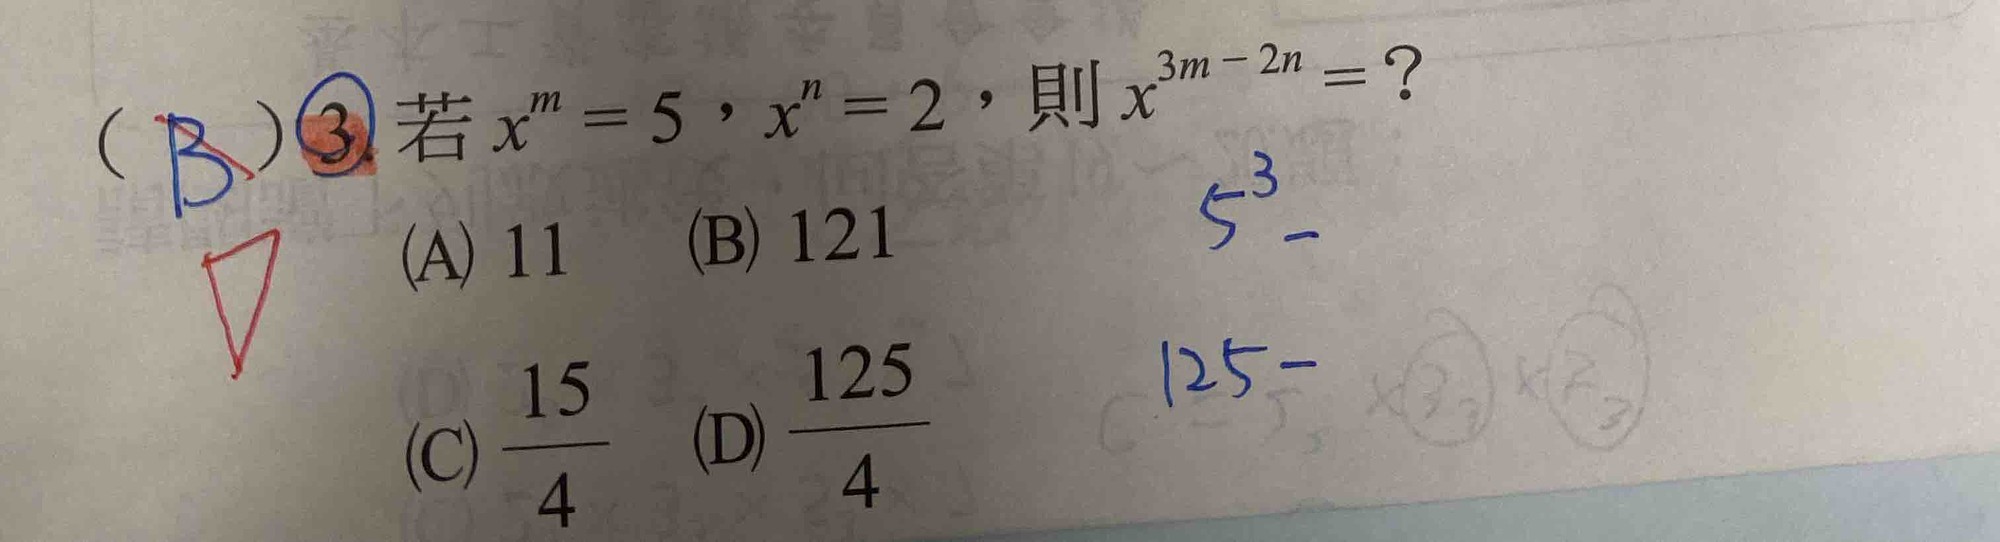 ( B ) 3. 若 x^m = 5，x^n = 2，則 x^{3m－2n} = ?
5^3 －
(A) 11 (B) 121
125－
(C) 15/4 (D) 125/4